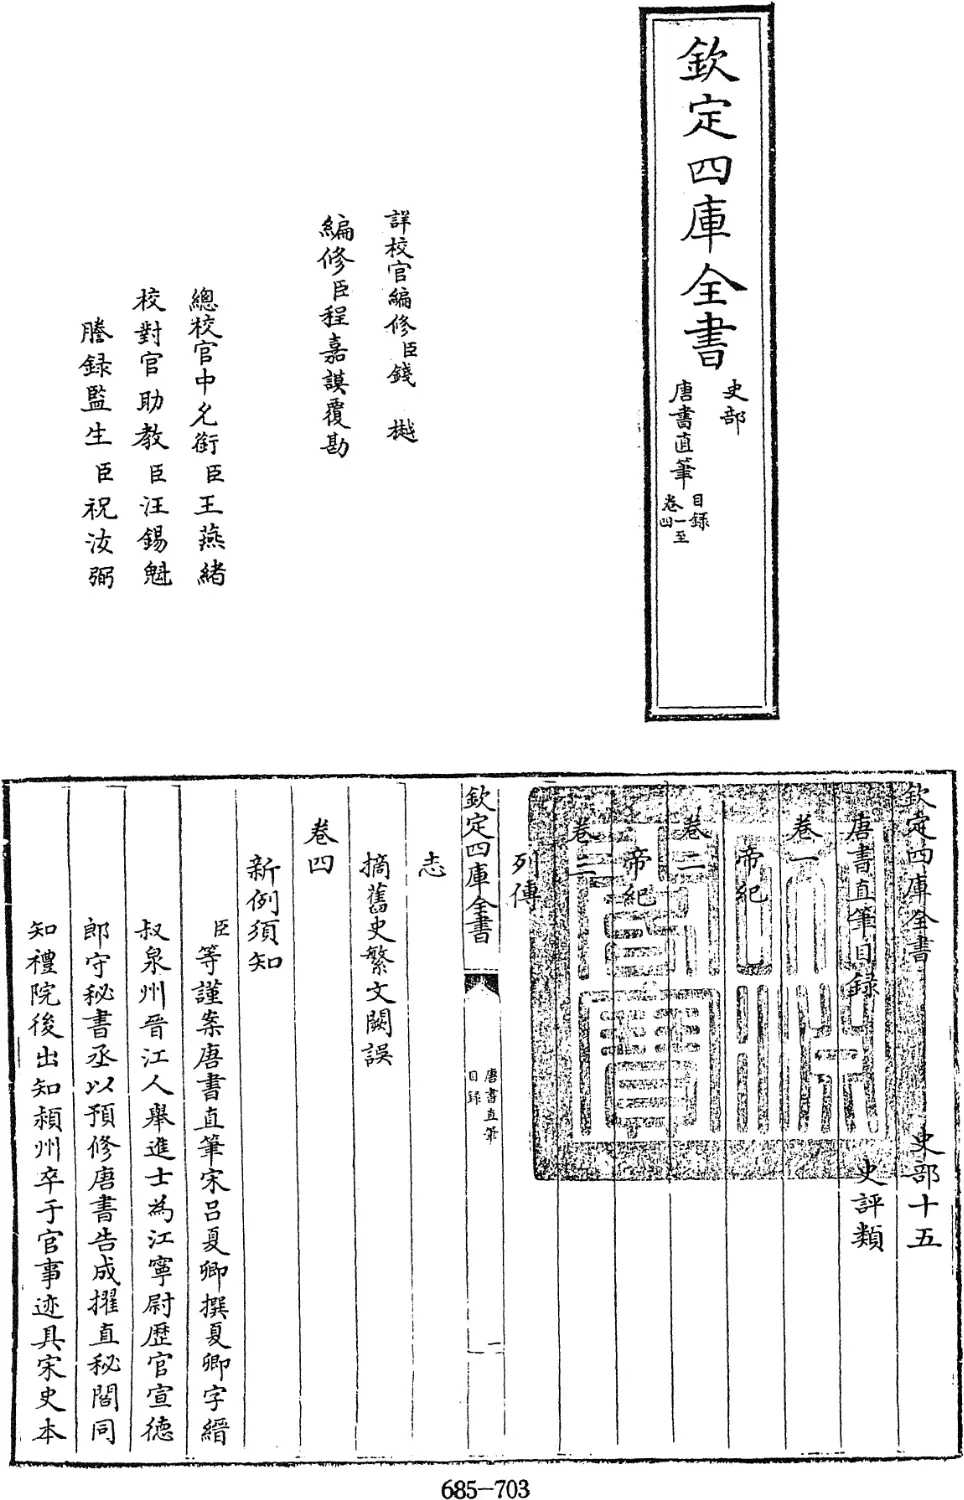 欽定四庫全書
史部
唐書直筆
目録
卷一至
四
詳校官編修臣錢樾
編修臣程嘉謨覆勘
總校官中允銜臣王燕緒
校對官助教臣汪錫魁
謄録監生臣祝汝弼
欽定四庫全書 史部十五
唐書直筆目録 史評類
卷一
帝紀
卷二
帝紀
卷三
列傳
欽定四庫全書
唐書直筆
目録
一
志
摘舊史繁文闕誤
卷四
新例須知
臣等謹案唐書直筆宋吕夏卿撰夏卿字縉
叔泉州晉江人舉進士為江寧尉歷官宣德
郎守秘書丞以預修唐書告成擢直秘閣同
知禮院後出知潁州卒于官事迹具宋史本
685-703